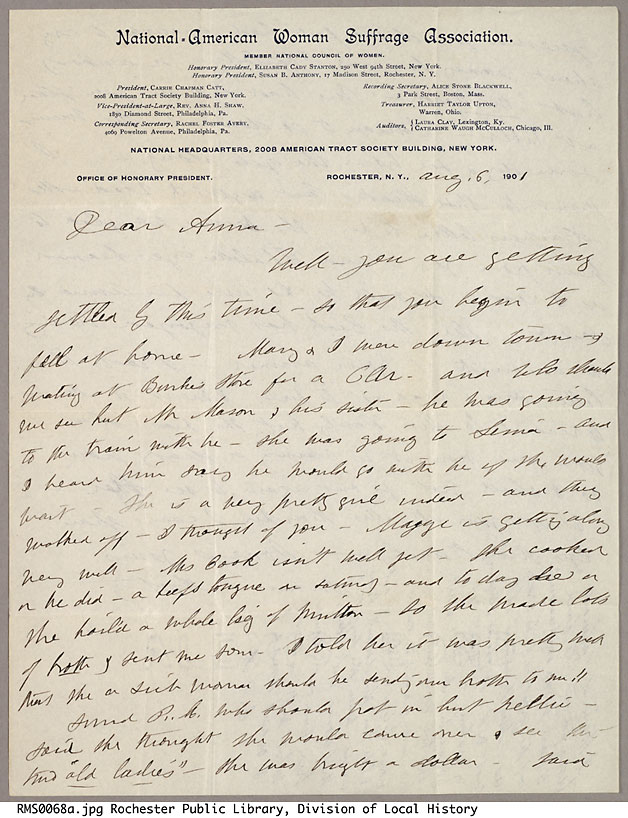 National-American Woman Suffrage Association.
MEMBER NATIONAL COUNCIL OF WOMEN.
Honorary President, ELIZABETH CADY STANTON, 250 West 94th Street, New York.
Honorary President, SUSAN B. ANTHONY, 17 Madison Street, Rochester, N. Y.
President, CARRIE CHAPMAN CATT,
2008 American Tract Society Building, New York.
Vice-President-at-Large, REV. ANNA H. SHAW,
1830 Diamond Street, Philadelphia, Pa.
Corresponding Secretary, RACHEL FOSTER AVERY,
4069 Powelton Avenue, Philadelphia, Pa.
Recording Secretary, ALICE STONE BLACKWELL,
3 Park Street, Boston, Mass.
Treasurer, HARRIET TAYLOR UPTON,
Warren, Ohio.
Auditors, { LAURA CLAY, Lexington, Ky.
{ CATHARINE WAUGH McCULLOCH, Chicago, Ill.
NATIONAL HEADQUARTERS, 2008 AMERICAN TRACT SOCIETY BUILDING, NEW YORK.
OFFICE OF HONORARY PRESIDENT. ROCHESTER, N. Y., Aug. 6, 1901
Dear Anna -
Well - you are getting
settled by this time - so that you begin to
feel at home - Mary & I were down town - &
waiting at Burke's Store for a Car - and who should
we see but Mr Mason & his sister - he was going
to the train with her - she was going to Lima - and
I heard him say he would go with he if she would
wait She is a very pretty girl indeed - and they
walked off - I thought of you - Maggie is getting along
very well - Mrs Cook isn't well yet - She cooked
or he did - a beefs tongue on saturday - and to day she or
She boild a whole leg of mutton - so she made lots
of broth & sent me some - I told her it was pretty well
that she a sick woman should be sending me broth to me!!
P. M. who should pop in but Nellie -
said she thought she would come over & see the
two "old ladies" - She was bright a dollar - said
RMS0068a.jpg Rochester Public Library, Division of Local History